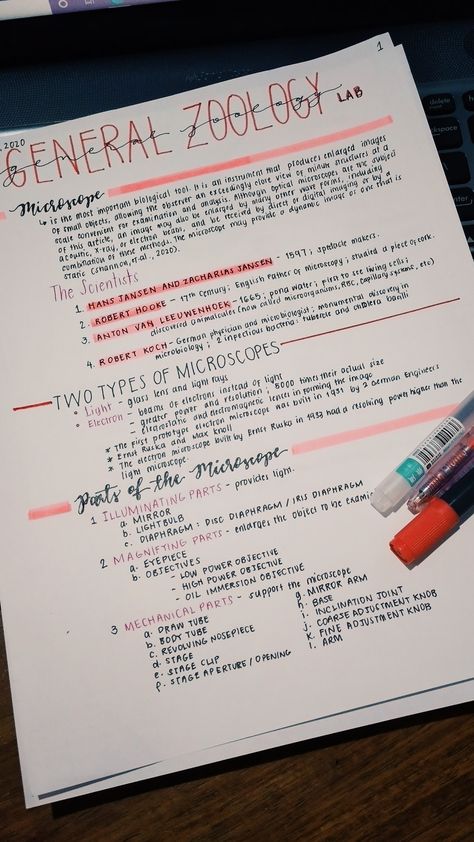 1
2020
GENERAL ZOOLOGY LAB
general zoology
Microscope
↳ is the most important biological tool. It is an instrument that produces enlarged images
of small objects, allowing the observer an exceedingly close view of minute structures at a
scale convenient for examination and analysis. Although optical microscopes are the subject
of this article, an image may also be enlarged by many other wave forms, including
acoustic, X-ray, or electron beam, and be received by direct or digital imaging or by a
combination of these methods. The microscope may provide a dynamic image or one that is
static (Shannow, et al., 2020).
The Scientists
1. HANS JANSEN AND ZACHARIAS JANSEN - 1597; spectacle makers.
2. ROBERT HOOKE - 17th Century; English Father of Microscopy; studied a piece of cork.
3. ANTON VAN LEEUWENHOEK - 1665; pond water; first to see living cells;
discovered animalcules (now called microorganisms, RBC, capillary systems, etc)
4. ROBERT KOCH - German physician and microbiologist; monumental discovery in
microbiology; 2 infectious bacteria: tubercle and cholera bacilli
TWO TYPES OF MICROSCOPES
• Light - glass lens and light rays
• Electron - beams of electrons instead of light
- greater power and resolution; 5000 times their actual size
- electrostatic and electromagnetic lenses in forming the image
* The first prototype electron microscope was built in 1931 by 2 German Engineers
* Ernst Ruska and Max Knoll
* The electron microscope built by Ernst Ruska in 1933 had a resolving power higher than the
light microscope.
Parts of the Microscope
1 ILLUMINATING PARTS - provides light.
a. MIRROR
b. LIGHTBULB
c. DIAPHRAGM: DISC DIAPHRAGM / IRIS DIAPHRAGM
2 MAGNIFYING PARTS - enlarges the object to be exami
a. EYEPIECE
b. OBJECTIVES
- LOW POWER OBJECTIVE
- HIGH POWER OBJECTIVE
- OIL IMMERSION OBJECTIVE
3 MECHANICAL PARTS - support the microscope
a. DRAW TUBE
b. BODY TUBE
c. REVOLVING NOSEPIECE
d. STAGE
e. STAGE CLIP
f. STAGE APERTURE / OPENING
g. MIRROR ARM
h. BASE
i. INCLINATION JOINT
j. COARSE ADJUSTMENT KNOB
k. FINE ADJUSTMENT KNOB
l. ARM
delete
backspace